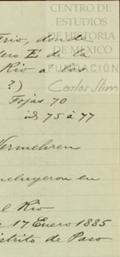 CENTRO DE
ESTUDIOS
DE HISTORIA
DE MEXICO
FUNDACIÓN
Carlos Slim
Rio, donde
Rio a los
?)
Fojas 70
id, 75 à 77
Vermehren
cluyeron en
el Rio
17 Enero 1885
distrito de Paso